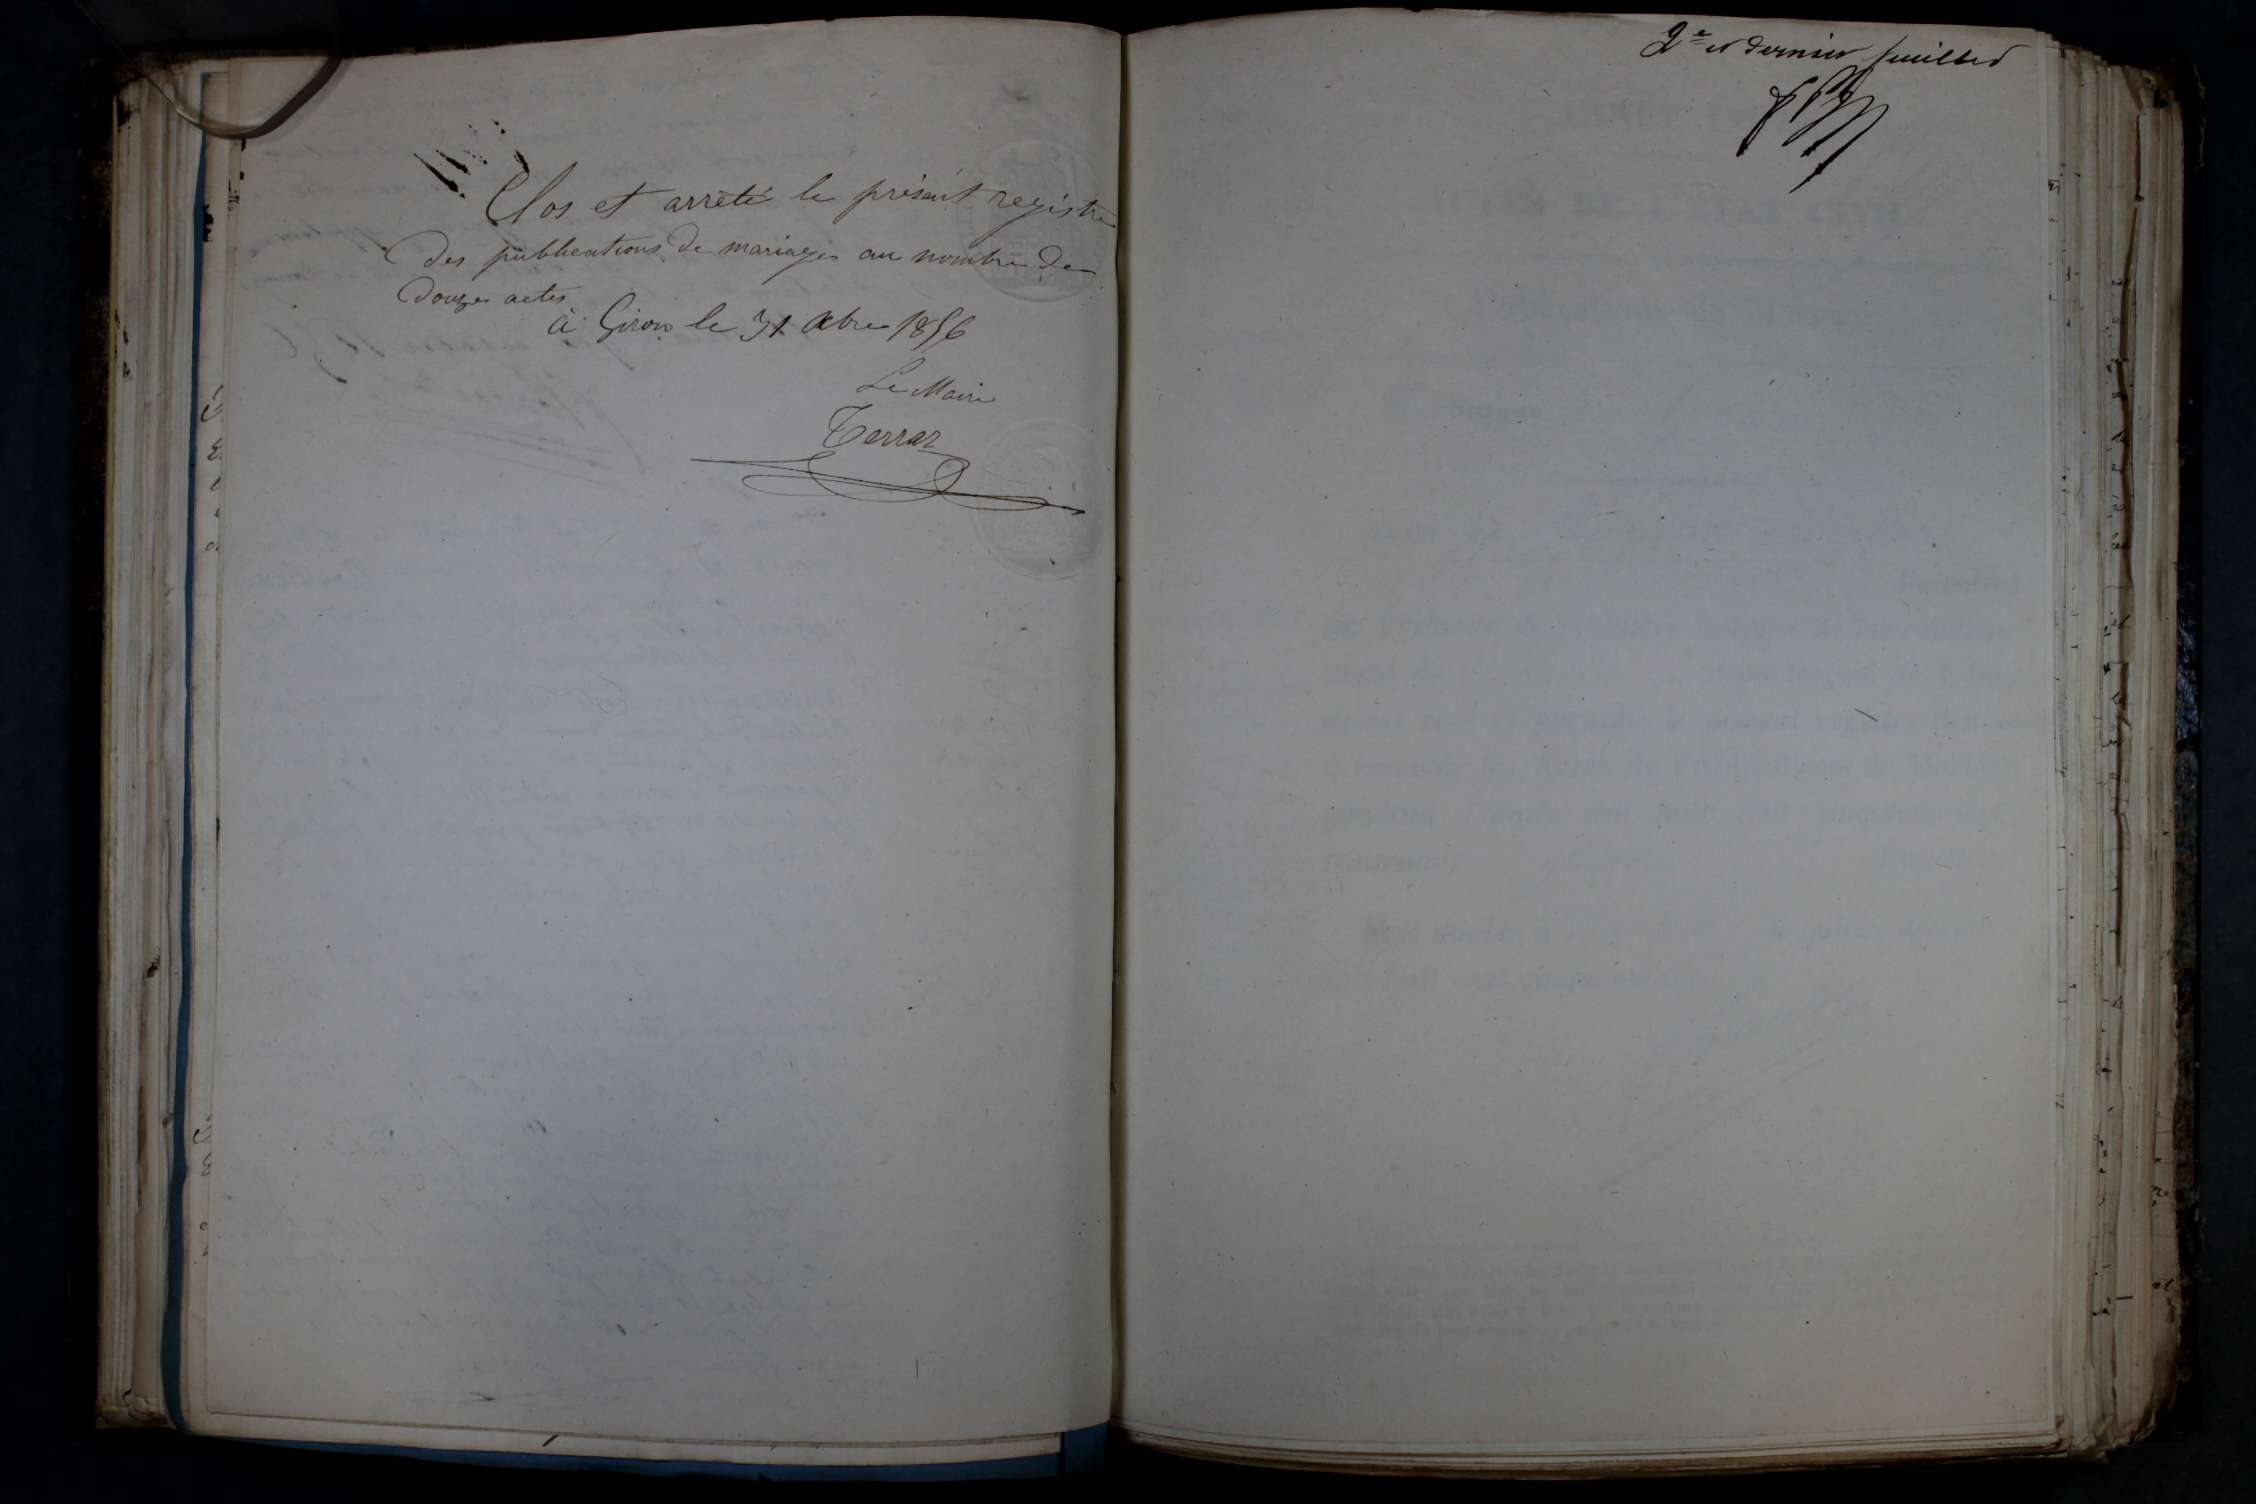 Clos et arrêté le présent registre
des publications de mariages au nombre de
douzes actes
à Giron le 31 Xbre 1856
Le Maire
Terraz
2e et dernier feuillet